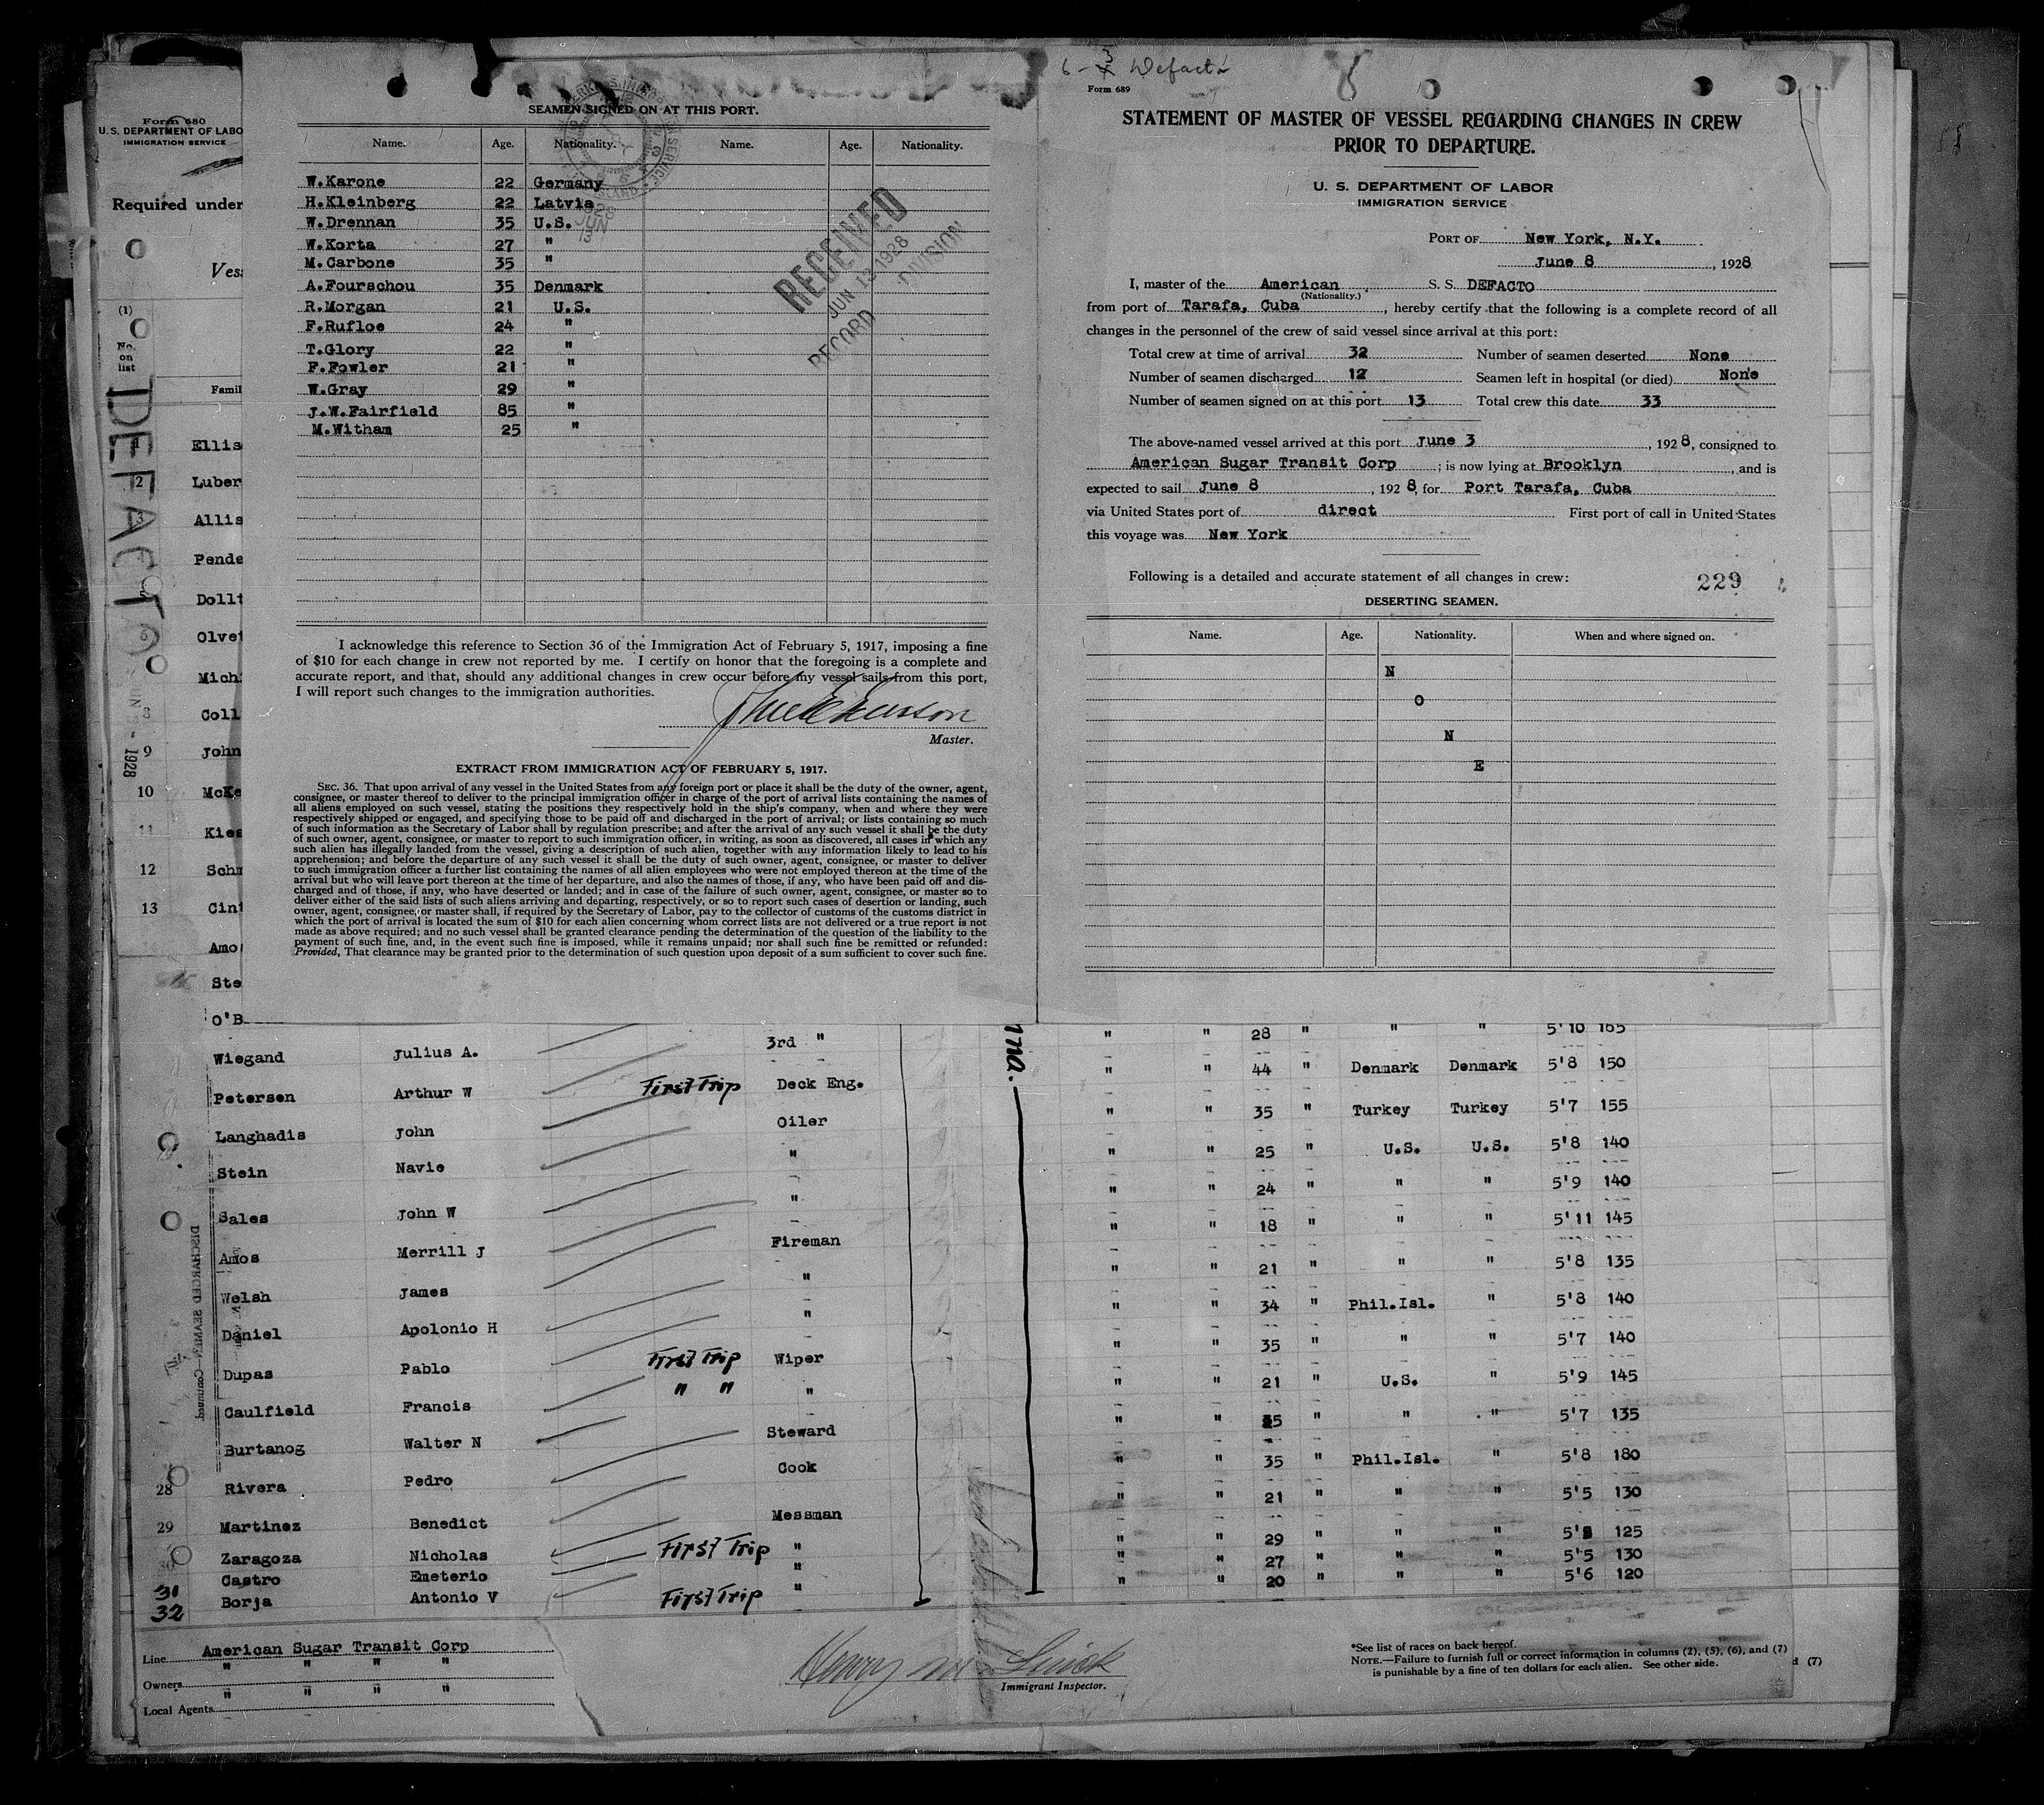 6-3 Defacto
Form 689
STATEMENT OF MASTER OF VESSEL REGARDING CHANGES IN CREW
PRIOR TO DEPARTURE.
U. S. DEPARTMENT OF LABOR
IMMIGRATION SERVICE
PORT OF New York, N.Y.
June 8, 1928
I, master of the American S. S. DEFACTO
(Nationality.)
from port of Tarafa, Cuba, hereby certify that the following is a complete record of all
changes in the personnel of the crew of said vessel since arrival at this port:
Total crew at time of arrival 32 Number of seamen deserted None
Number of seamen discharged 12 Seamen left in hospital (or died) None
Number of seamen signed on at this port 13 Total crew this date 33
The above-named vessel arrived at this port June 3, 1928, consigned to
American Sugar Transit Corp; is now lying at Brooklyn, and is
expected to sail June 8, 1928, for Port Tarafa, Cuba
via United States port of direct First port of call in United States
this voyage was New York
Following is a detailed and accurate statement of all changes in crew:
229
DESERTING SEAMEN.
Name. Age. Nationality. When and where signed on.
N
O
N
E
SEAMEN SIGNED ON AT THIS PORT.
Name. Age. Nationality. Name. Age. Nationality.
W.Karone 22 Germany
H.Kleinberg 22 Latvia
W.Drennan 35 U.S.
W.Korta 27 "
M.Carbone 35 "
A.Fourschou 35 Denmark
R.Morgan 21 U.S.
F.Rufloe 24 "
T.Glory 22 "
F.Fowler 21 "
W.Gray 29 "
J.W.Fairfield 85 "
M.Witham 25 "
RECEIVED
JUN 13 1928
RECORD DIVISION
I acknowledge this reference to Section 36 of the Immigration Act of February 5, 1917, imposing a fine
of $10 for each change in crew not reported by me. I certify on honor that the foregoing is a complete and
accurate report, and that, should any additional changes in crew occur before my vessel sails from this port,
I will report such changes to the immigration authorities.
Master.
EXTRACT FROM IMMIGRATION ACT OF FEBRUARY 5, 1917.
SEC. 36. That upon arrival of any vessel in the United States from any foreign port or place it shall be the duty of the owner, agent,
consignee, or master thereof to deliver to the principal immigration officer in charge of the port of arrival lists containing the names of
all aliens employed on such vessel, stating the positions they respectively hold in the ship's company, when and where they were
respectively shipped or engaged, and specifying those to be paid off and discharged in the port of arrival; or lists containing so much
of such information as the Secretary of Labor shall by regulation prescribe; and after the arrival of any such vessel it shall be the duty
of such owner, agent, consignee, or master to report to such immigration officer, in writing, as soon as discovered, all cases in which any
such alien has illegally landed from the vessel, giving a description of such alien, together with any information likely to lead to his
apprehension; and before the departure of any such vessel it shall be the duty of such owner, agent, consignee, or master to deliver
to such immigration officer a further list containing the names of all alien employees who were not employed thereon at the time of the
arrival but who will leave port thereon at the time of her departure, and also the names of those, if any, who have been paid off and dis-
charged and of those, if any, who have deserted or landed; and in case of the failure of such owner, agent, consignee, or master so to
deliver either of the said lists of such aliens arriving and departing, respectively, or so to report such cases of desertion or landing, such
owner, agent, consignee, or master shall, if required by the Secretary of Labor, pay to the collector of customs of the customs district in
which the port of arrival is located the sum of $10 for each alien concerning whom correct lists are not delivered or a true report is not
made as above required; and no such vessel shall be granted clearance pending the determination of the question of the liability to the
payment of such fine, and, in the event such fine is imposed, while it remains unpaid; nor shall such fine be remitted or refunded:
Provided, That clearance may be granted prior to the determination of such question upon deposit of a sum sufficient to cover such fine.
Form 680
U. S. DEPARTMENT OF LABO
IMMIGRATION SERVICE
Required under
Ves
(1)
No.
on
list
Famil
DEFACTO
1928
1 Ellis
2 Luber
3 Allis
Pende
Dollt
6 Olvet
Mich
8 Coll
9 John
10 McKe
11 Kies
12 Schm
13 Cint
Amo
Ste
O'B
" " 28 " " " 5'10 165
Wiegand Julius A. 3rd " " " 44 " Denmark Denmark 5'8 150
Petersen Arthur W First Trip Deck Eng. " " 35 " Turkey Turkey 5'7 155
Langhadis John Oiler " " 25 " U.S. U.S. 5'8 140
Stein Navie " " " 24 " " " 5'9 140
Sales John W " " " 18 " " " 5'11 145
Amos Merrill J Fireman " " 21 " " " 5'8 135
Welsh James " " " 34 " Phil.Isl. " 5'8 140
Daniel Apolonio H " " " 35 " " " 5'7 140
Dupas Pablo First Trip Wiper " " 21 " U.S. " 5'9 145
Caulfield Francis " " " " " 35 " " " 5'7 135
Burtanog Walter N Steward " " 35 " Phil.Isl. " 5'8 180
28 Rivera Pedro Cook " " 21 " " " 5'5 130
29 Martinez Benedict Messman " " 29 " " " 5' 125
Zaragoza Nicholas First Trip " " " 27 " " " 5'5 130
31 Castro Emeterio " " " 20 " " " 5'6 120
32 Borja Antonio V First Trip "
DISCHARGED SEAMEN—Continued.
Line American Sugar Transit Corp
Owners " " " "
Local Agents " " " "
Henry
Immigrant Inspector.
*See list of races on back hereof.
NOTE.—Failure to furnish full or correct information in columns (2), (5), (6), and (7)
is punishable by a fine of ten dollars for each alien. See other side.
d (7)